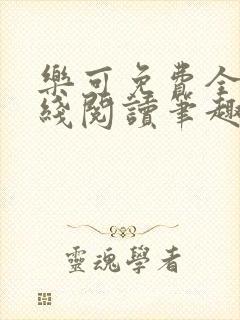 樂可免費全
綫閱讀筆趣
靈魂學者